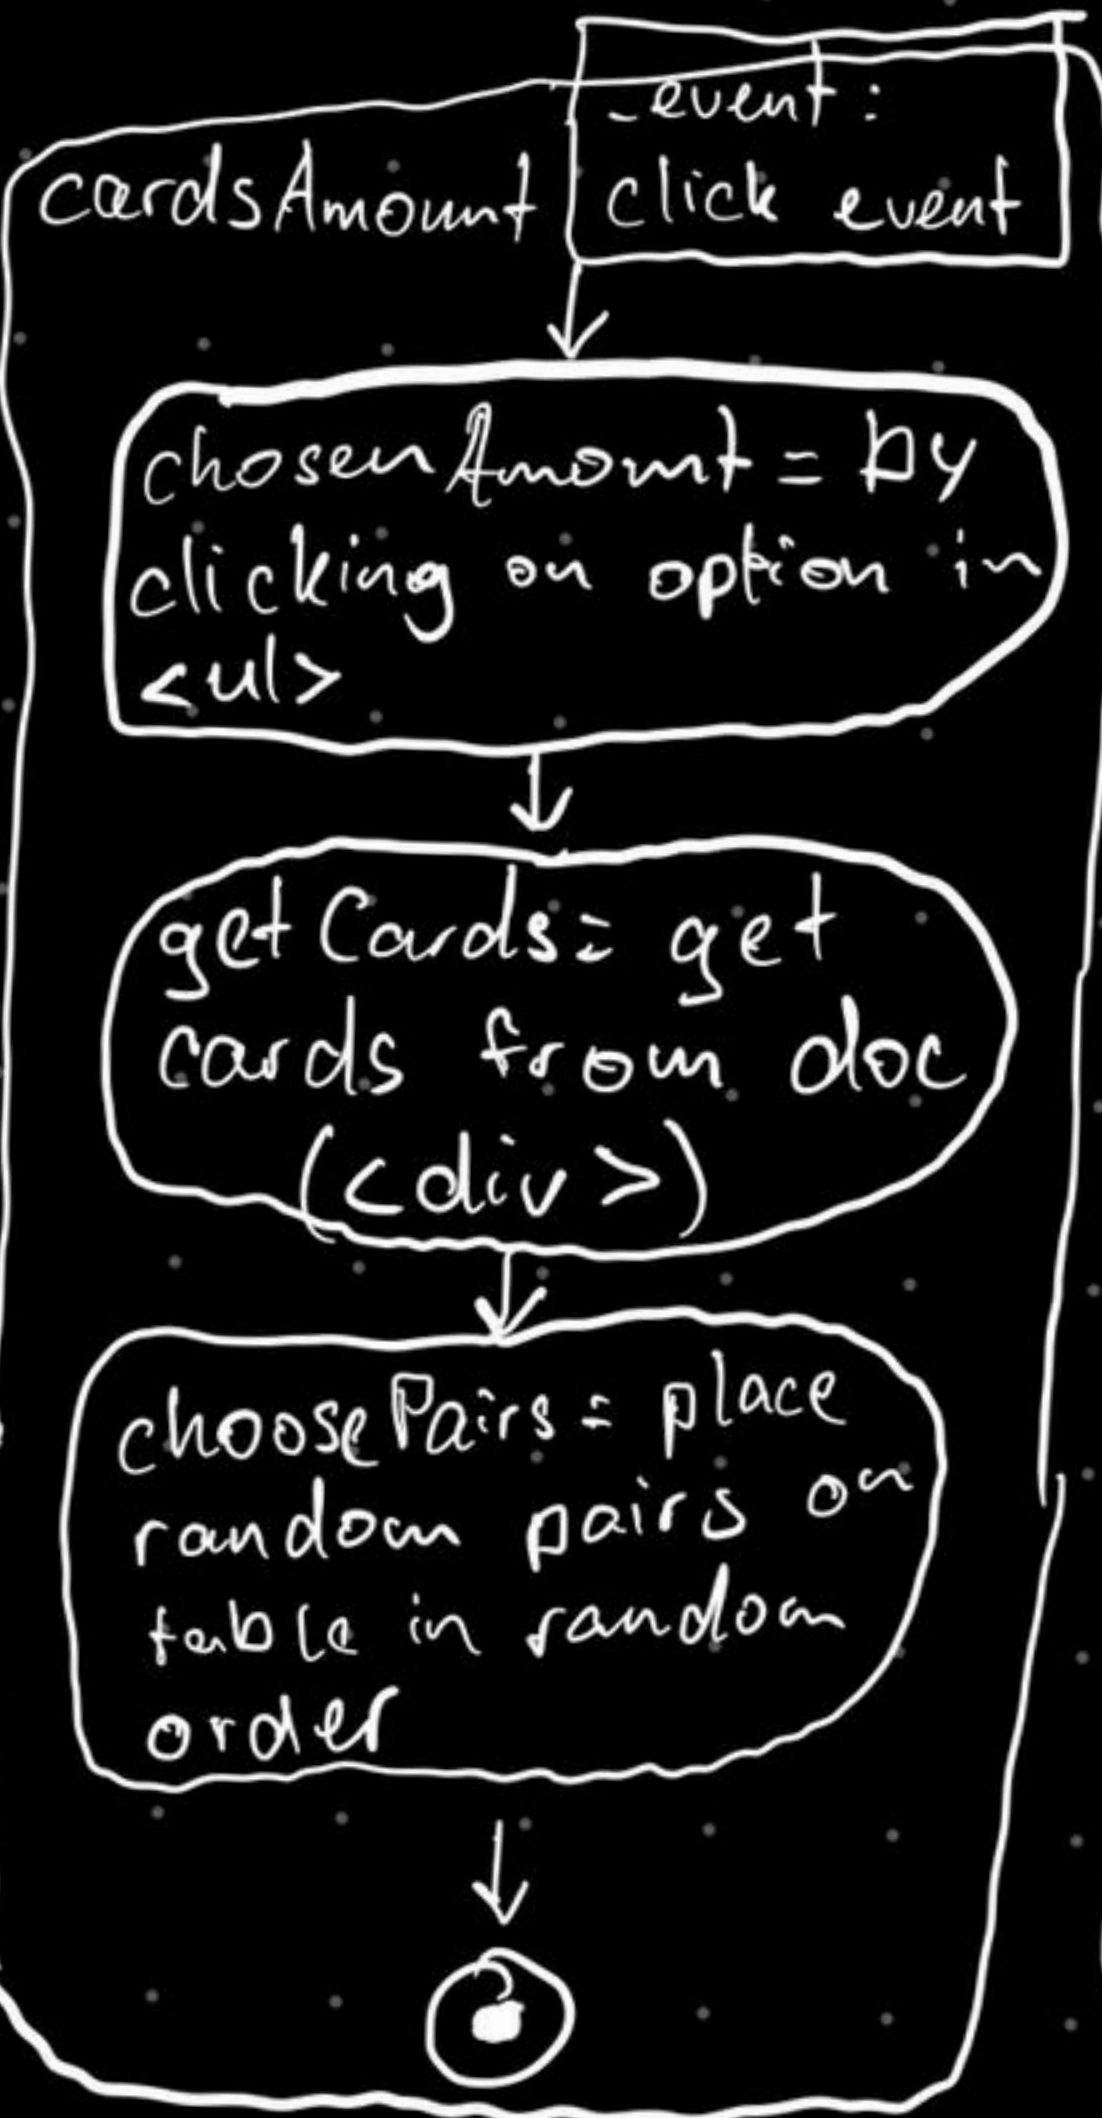 _event:
cardsAmount click event
chosenAmount = by
clicking on option in
<ul>
getCards = get
cards from doc
(<div>)
choosePairs = place
random pairs on
table in random
order